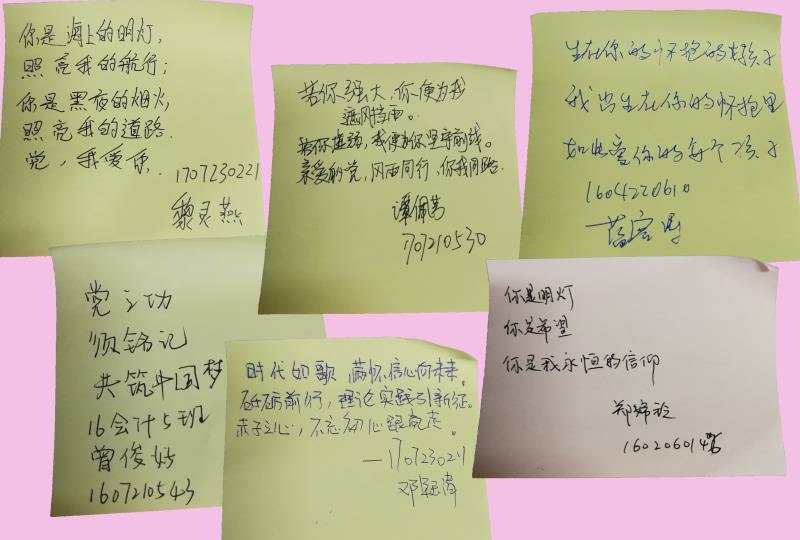 你是海上的明灯,
照亮我的航行;
你是黑夜的烟火,
照亮我的道路.
党,我爱你.
1707230221
黎灵燕
若你强大,你便为我
遮风挡雨。
若你虚弱,我便为你坚守前线。
亲爱的党,风雨同行,你我同路.
谭佩芳
170210530
生在你的怀抱的孩子
我出生在你的怀抱里
如此爱你的每个孩子
1604220610
党之功
须铭记
共筑中国梦
16会计5班
曾俊好
1607210543
时代如歌 满怀信心向未来.
砥砺前行,理论实践引新征.
赤子之心,不忘初心跟党走。
—170723021
你是明灯
你是希望
你是我永恒的信仰
郑婷玲